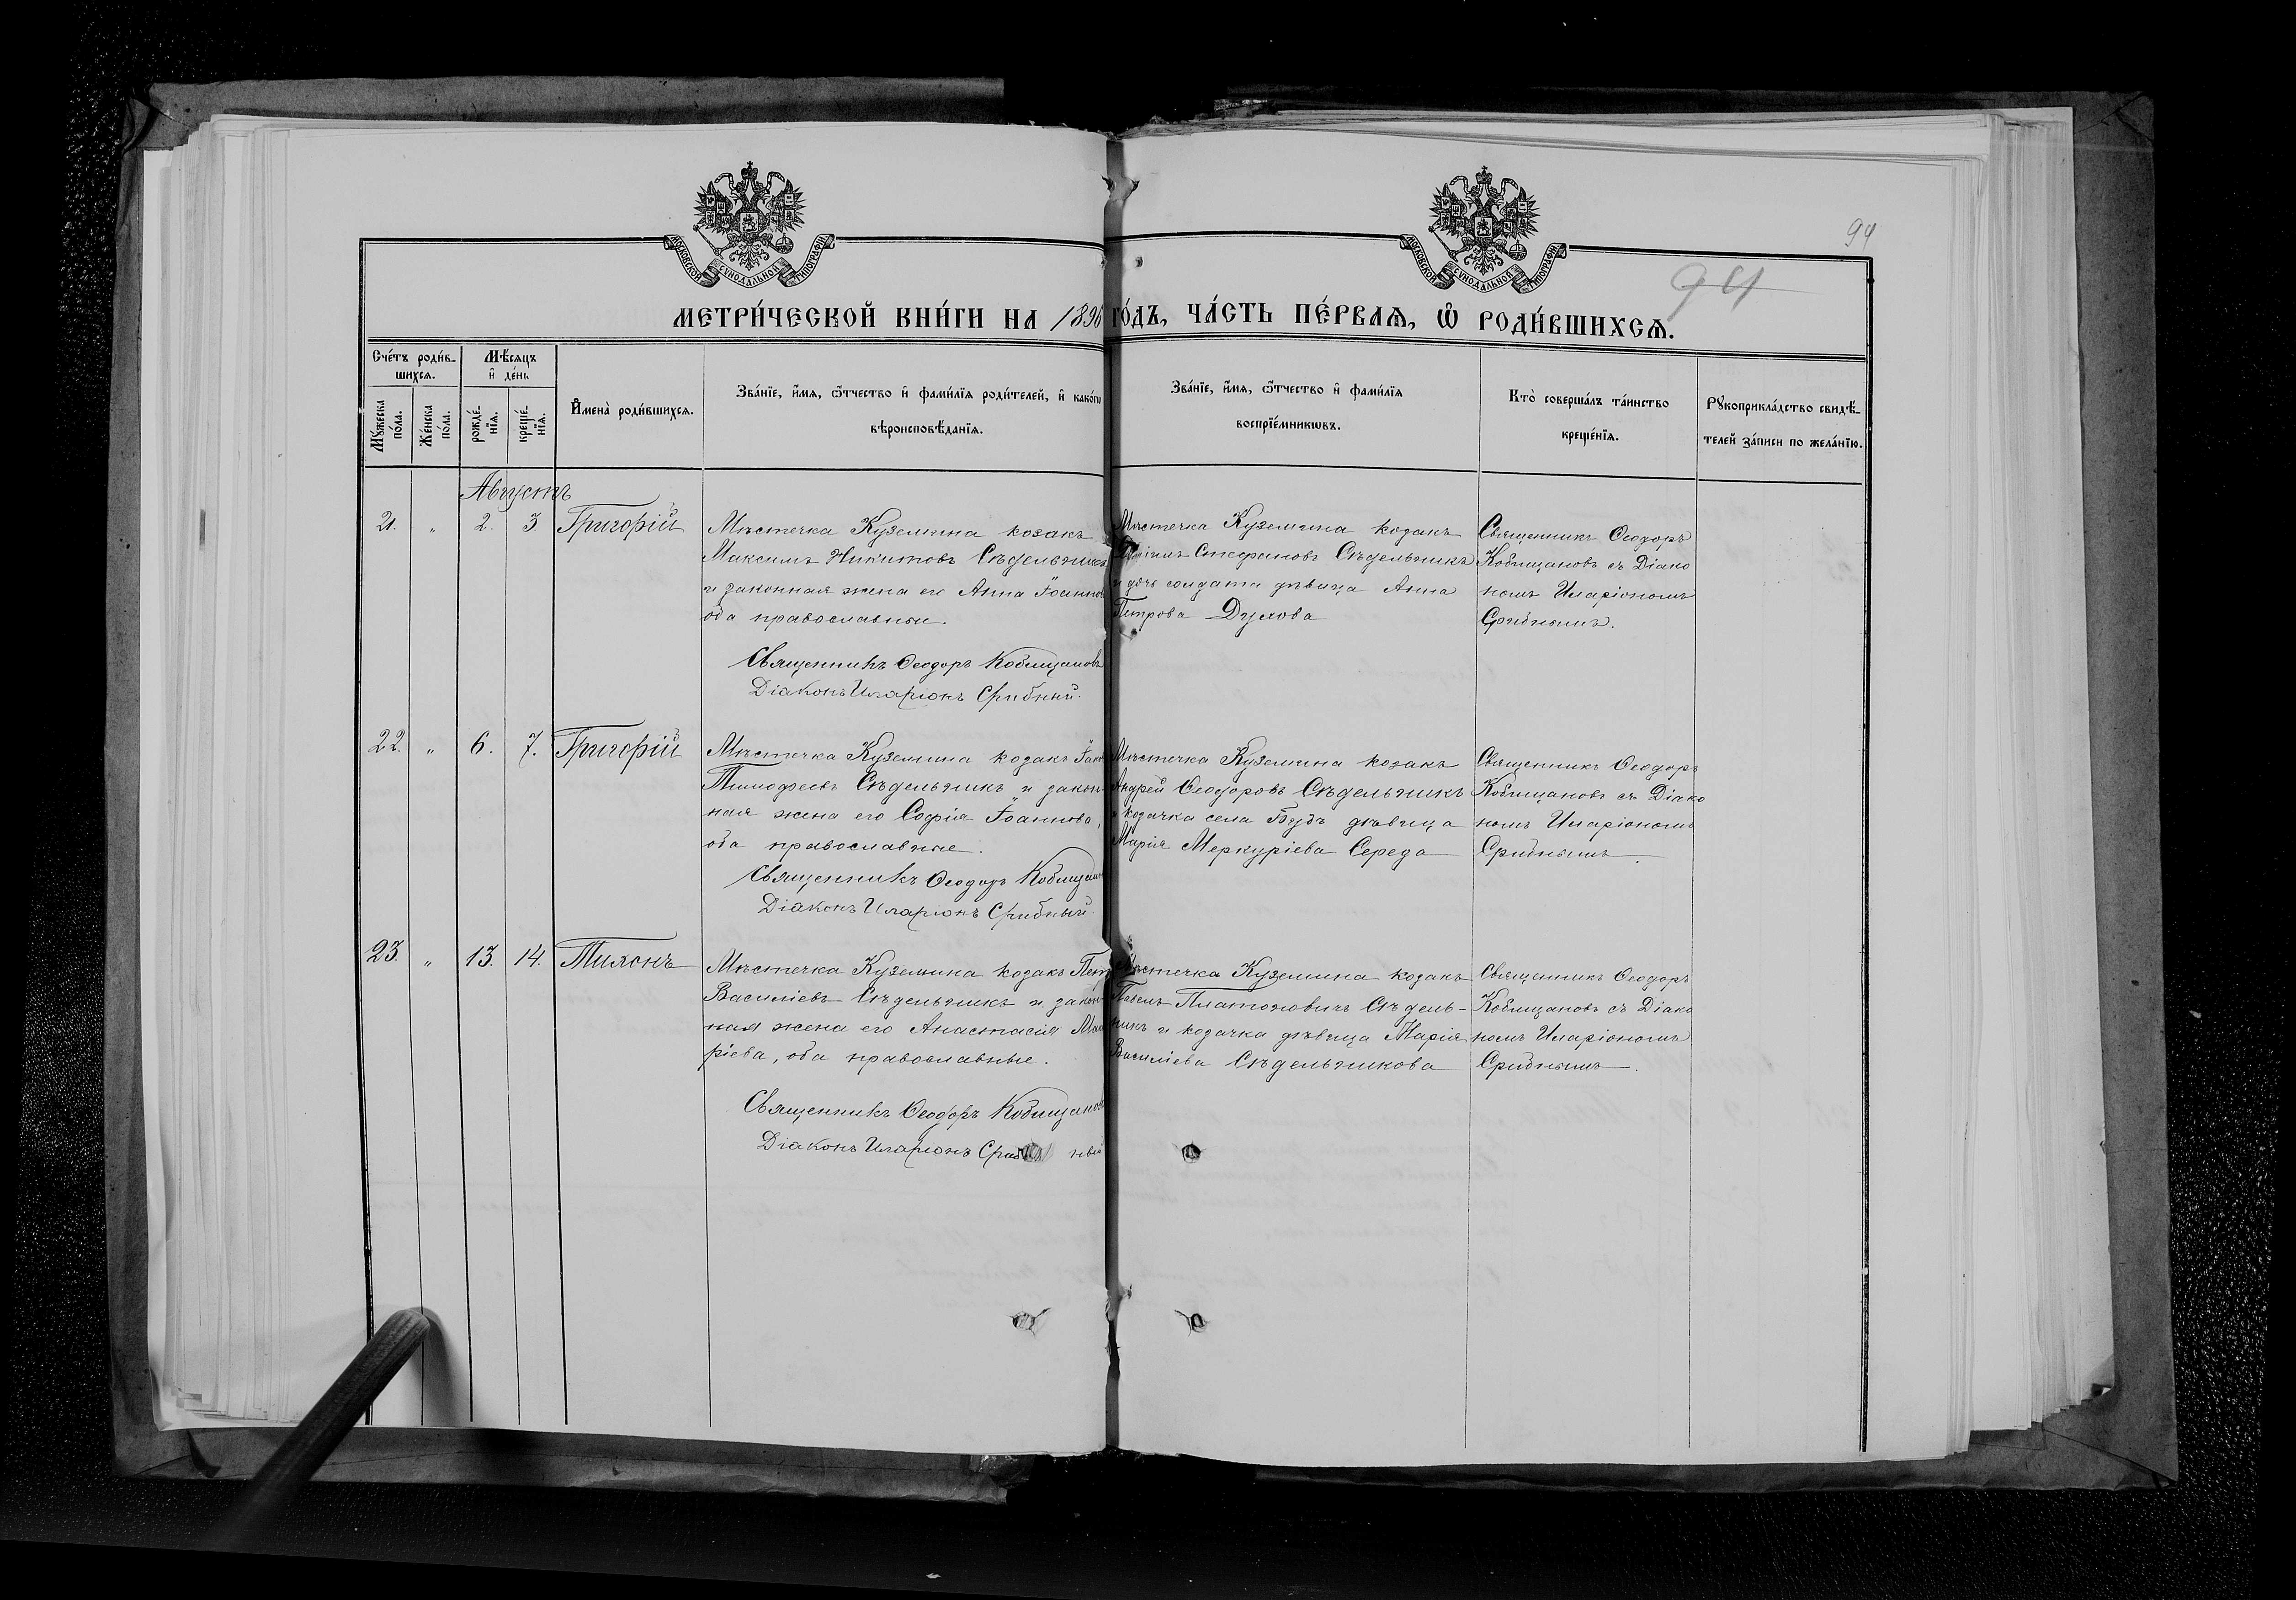 94
94
МОСКОВСКОЙ СУНОДАЛЬНОЙ ТИПОГРАФІИ
МОСКОВСКОЙ СУНОДАЛЬНОЙ ТИПОГРАФІИ
МЕТРИ́ЧЕСКОЙ КНИ́ГИ НА 1890 ГО́ДЪ, ЧА́СТЬ ПЕ́РВАѦ, Ѡ҆ РОДИ́ВШИХСѦ.
Сче́тъ роди́в-
шихся.
Мѣ́сяцъ
и҆ де́нь
Мꙋ́жеска по́ла.
Же́нска по́ла.
рожде́-нїя.
креще́-нїя.
И҆мена̀ роди́вшихся.
Зва́нїе, и҆́мя, ѻ҆́тчество и҆ фами́лїя роди́телей, и҆ како́гѡ
вѣроисповѣ́данїя.
Зва́нїе, и҆́мя, ѻ҆́тчество и҆ фами́лїя
воспрїе́мникѡвъ.
Кто̀ соверша́лъ та́инство
креще́нїя.
Рꙋкоприкла́дство свидѣ́-
телей за́писи по жела́нїю.
Августъ
21. " 2. 3 Григорій
Мѣстечка Куземина козакъ
Максимъ Никитовъ Сѣдельникъ
и законная жена его Анна Іоаннов
оба православныи.
Священникъ Ѳеодоръ Кобищановъ
Діаконъ Иларіонъ Срибный.
Мѣстечка Куземина козакъ
Стефановъ Сѣдельникъ
и дочь солдата дѣвица Анна
Петрова Духова
Священникъ Ѳеодоръ
Кобищановъ съ Діако
номъ Иларіономъ
Срибнымъ.
22. " 6. 7. Григорій
Мѣстечка Куземина козакъ
Тимофеевъ Сѣдельникъ и закон-
ная жена его Софія Іоаннова,
оба православные.
Священникъ Ѳеодоръ Кобищан
Діаконъ Иларіонъ Срибный.
Мѣстечка Куземина козакъ
Андрей Ѳеодоровъ Сѣдельникъ
и козачка села Будъ дѣвица
Марія Меркуріева Середа
Священникъ Ѳеодоръ
Кобищановъ съ Діако
номъ Иларіономъ
Срибнымъ.
23. " 13. 14. Тихонъ
Мѣстечка Куземина козакъ Пет
Василіевъ Сѣдельникъ и закон-
ная жена его Анастасія Мак
ріева, оба православные.
Священникъ Ѳеодоръ Кобищанов
Діаконъ Иларіонъ Срибный
Мѣстечка Куземина козакъ
Павелъ Платоновичъ Сѣдель-
никъ и козачка дѣвица Марія
Василіева Сѣдельникова
Священникъ Ѳеодоръ
Кобищановъ съ Діако
номъ Иларіономъ
Срибнымъ.